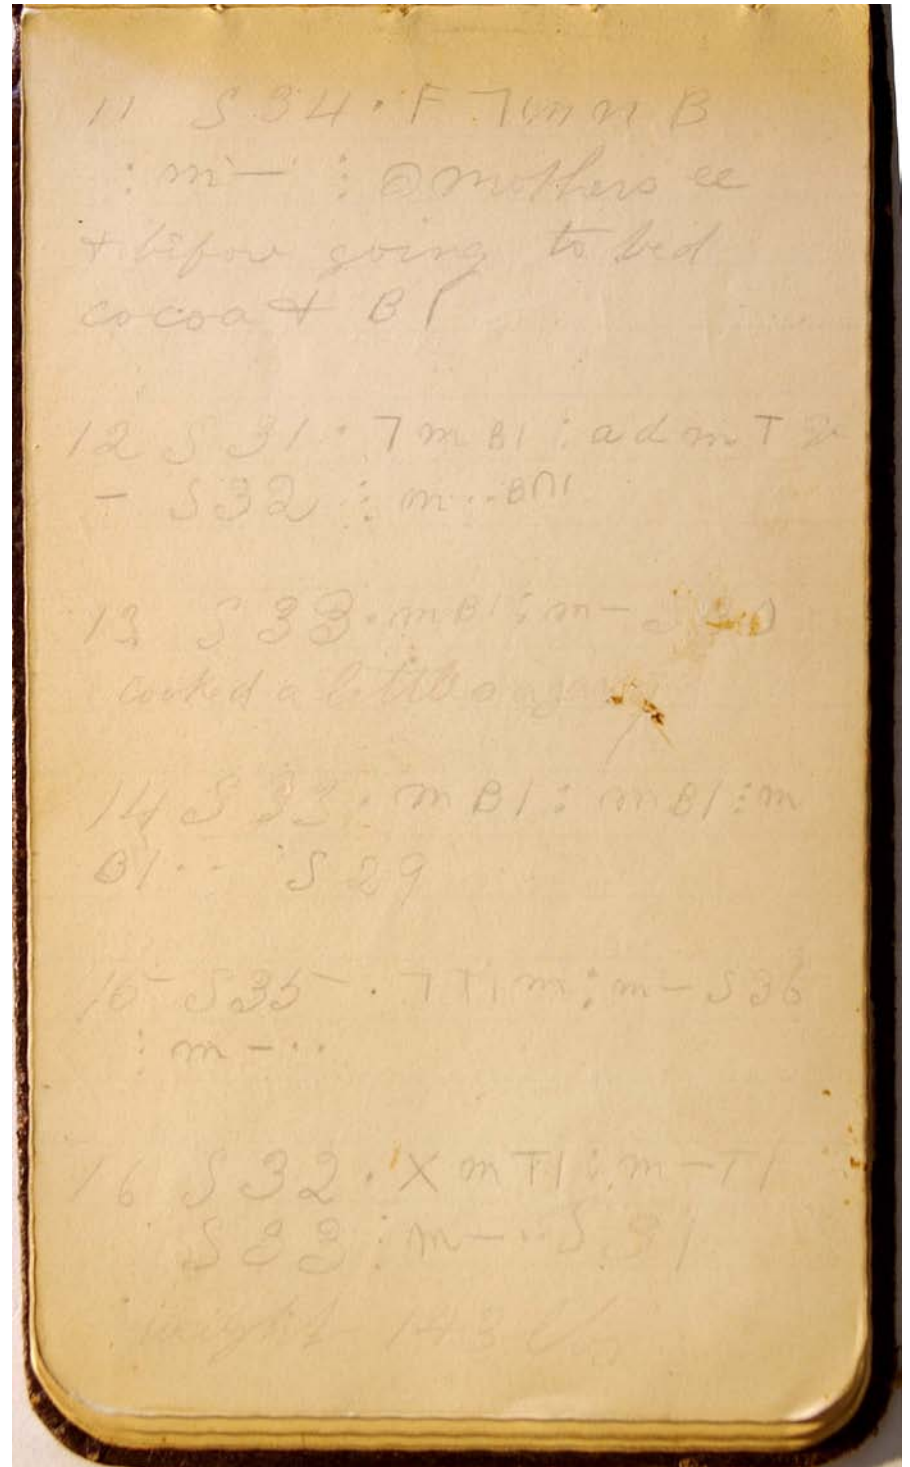 11 S 34 · F 7 m n B
: m — ⋮ @ mothers ee
+ before going to bed
cocoa + B
12 S 31 · 7 m B1 : a d m T
— S32 ⋮ m ·· B∩1
13 S 33 · m B1 : m — S
cooked a little
14 S 33 · m B1 : m B1 ⋮ m
B1 ·· S 29
15 S35 · 7 T1 m : m — S36
⋮ m — ··
16 S 32 · X m T1 : m — T1
S33 ⋮ m — ·· S 31
weight 143 lbs